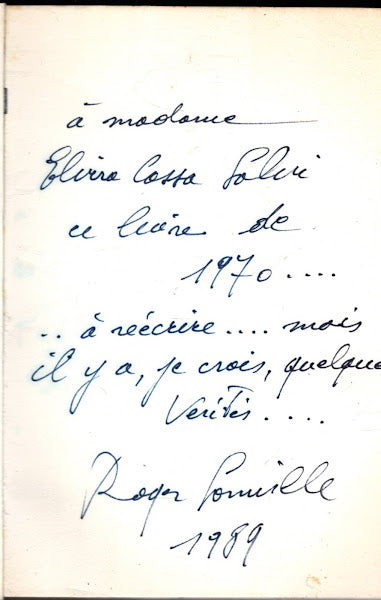 à madame
Elvira Cassa Salvi
ce livre de
1970....
.. à réécrire.... mais
il y a, je crois, quelque
Verités....
Roger Somville
1989